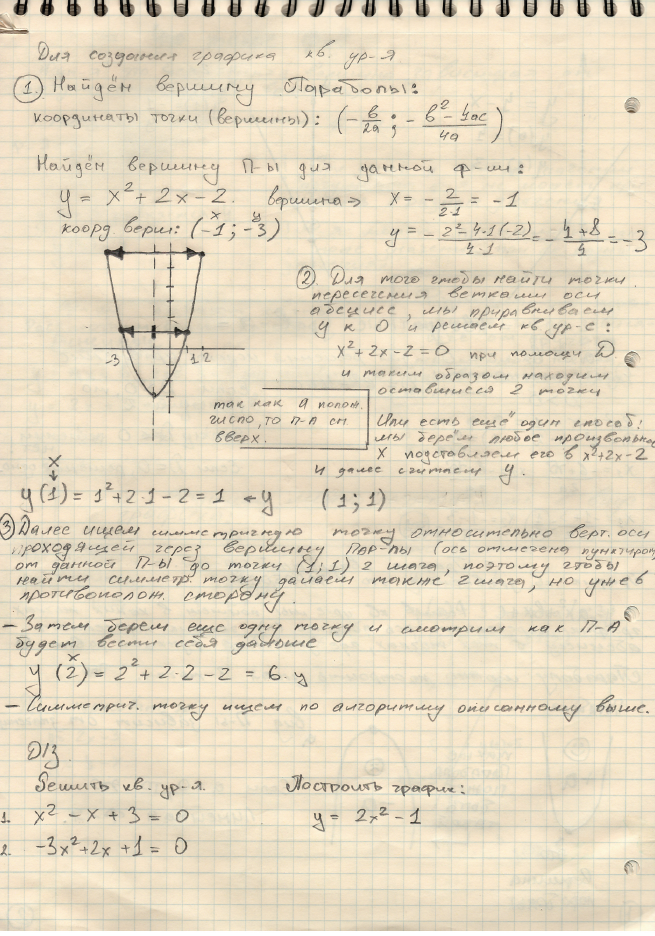 Для создания графика кв. ур-я
1. Найдём вершину Параболы:
координаты точки (вершины): (-в/2а ; -в²-4ас/4а)
Найдём вершину П-ы для данной ф-ии:
y = x²+2x-2. вершина => x = -2/2·1 = -1
коорд. верш: (-1; -3) y = -2²-4·1(-2)/4·1 = -4+8/4 = -3
x y
-3 1 2
2. Для того чтобы найти точки
пересечения ветками оси
абсцисс, мы приравниваем
y к 0 и решаем кв ур-е:
x²+2x-2=0 при помощи D
и таким образом находим
оставшиеся 2 точки
так как а полож.
число, то П-А см
вверх.
Или есть ещё один способ:
мы берём любое произвольное
x подставляем его в x²+2x-2
и далее считаем y.
x
y(1)=1²+2·1-2=1 ←y (1;1)
3 Далее ищем симметричную точку относительно верт. оси
проходящей через вершину Пар-лы (ось отмечена пунктиром)
от данной П-ы до точки (1;1) 2 шага, поэтому чтобы
найти симметр. точку делаем также 2 шага, но уже в
противополож. сторону.
- Затем берем еще одну точку и смотрим как П-А
будет вести себя дальше
x
y(2)=2²+2·2-2=6·y
- Симметрич. точку ищем по алгоритму описанному выше.
D/з.
Решить кв. ур-я. Построить график:
1. x²-x+3=0 y=2x²-1
2. -3x²+2x+1=0